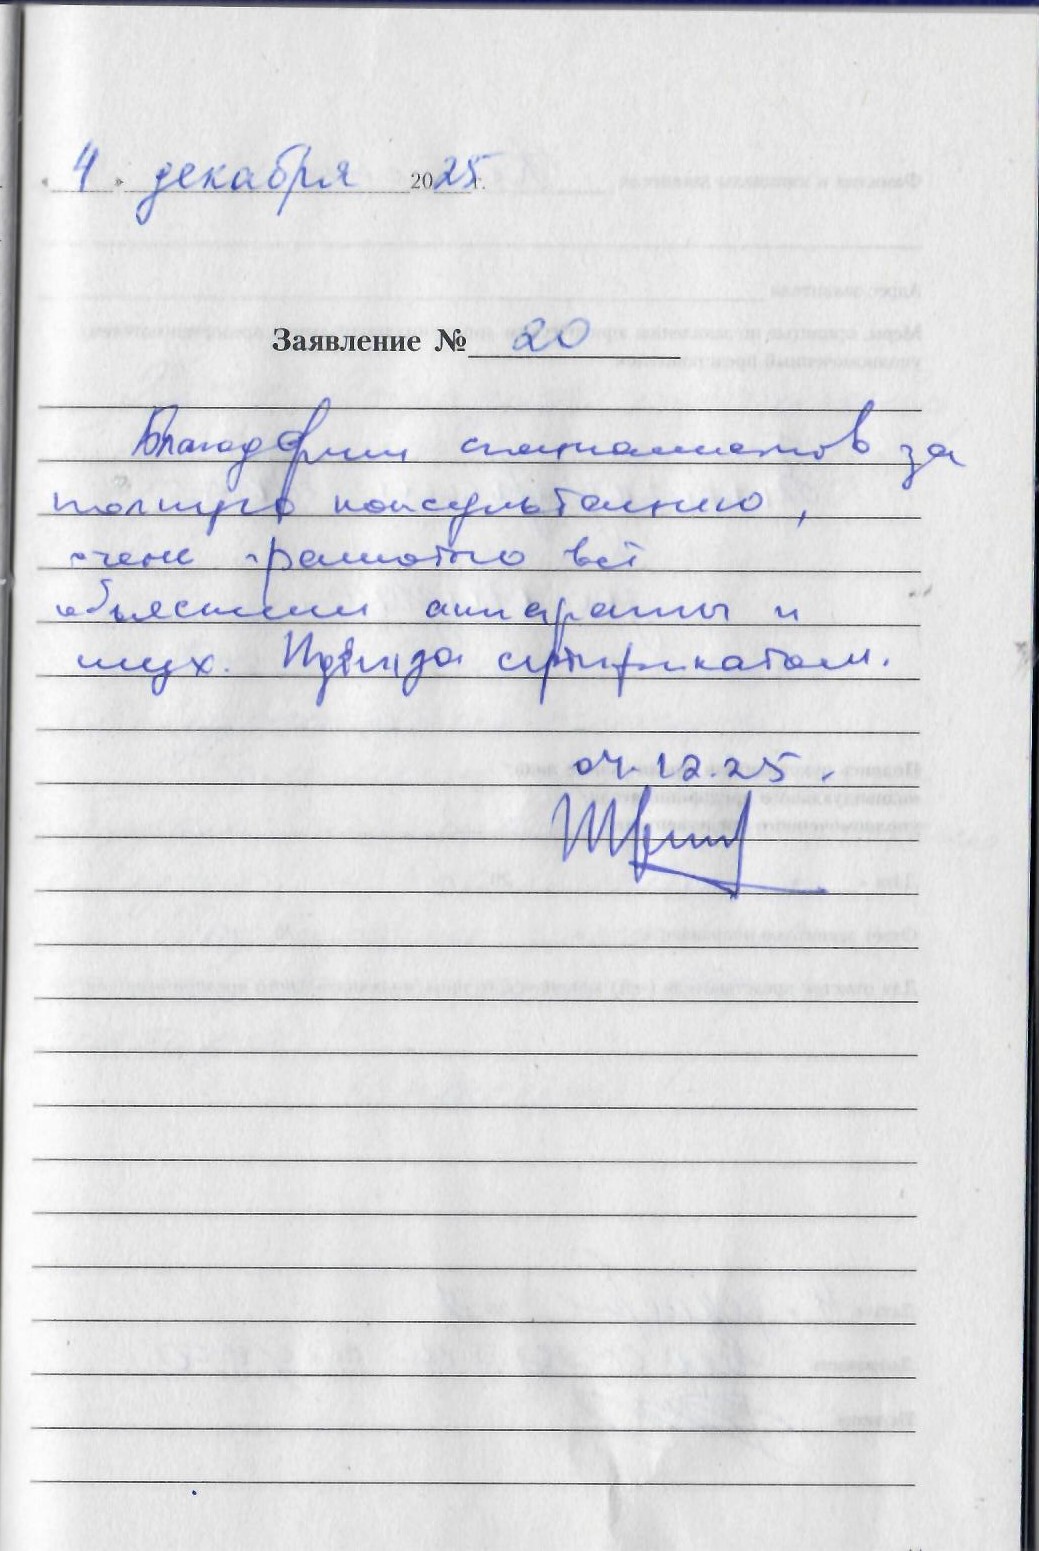 « 4 » декабря 2025 г.
Заявление № 20
Благодарим специалистов за
полную консультацию,
очень грамотно всё
объяснили аппараты и
слух. Приду за сертификатом.
04.12.25.